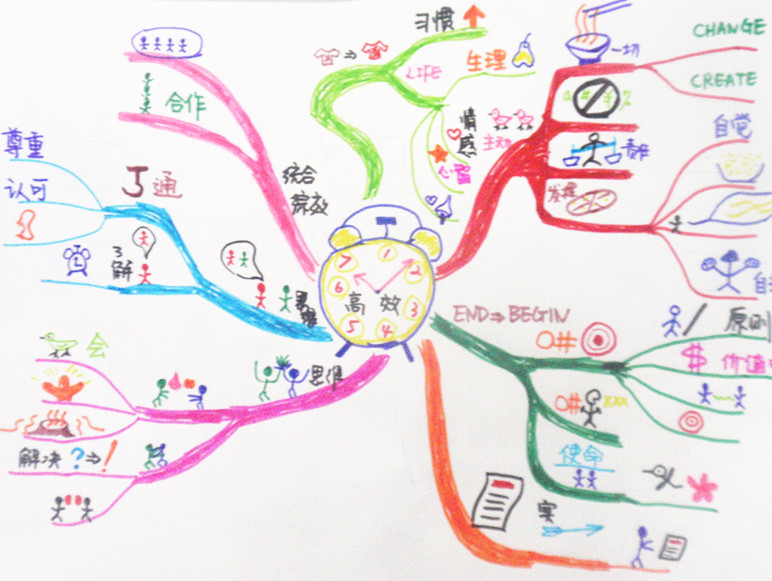 7 1 2
6 高效 3
5 4
习惯
LIFE
生理
情感
主动
心
一切
CHANGE
CREATE
责任
发挥
自觉
自
END⇒BEGIN
O#
原则
价值
O# xxx
使命
实
思维
会
解决?⇒!
了解
了通
尊重
认可
统合
综效
合作